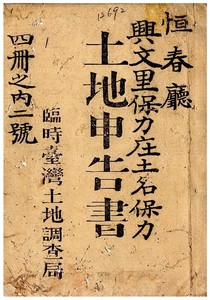 12692
恒春廳
興文里保力庄土名保力
土地申告書
臨時臺灣土地調查局
四冊之內二號